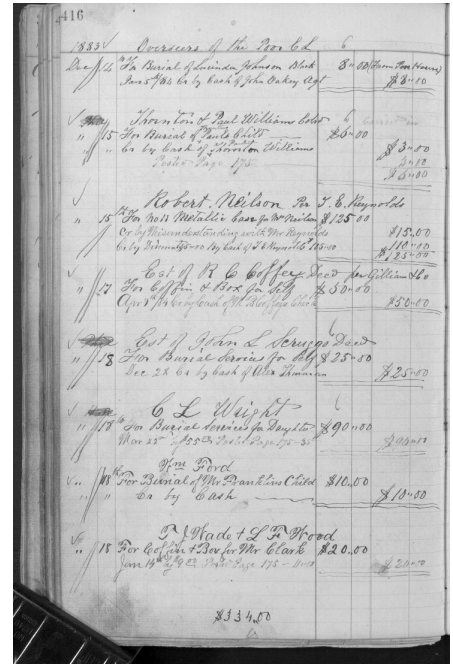 416
1883 Overseers of the Poor C L 6
Dec 14 For Burial of Lucinda Johnson Black 8"00 (From Poor House)
June 5th/84 Cr by Cash of John Oakey Agt $8"00
Thornton & Paul Williams Cold 6
" 15 For Burial of Pauls Child $6"00
" Cr by Cash of Thornton Williams $3"00
Posted Page 175 3"00
$6"00
Robert Neilson Per T. E. Reynolds
" 15th For No 11 Metallic Case for Mr Neilson $125"00
Cr by Misunderstanding with Mr Reynolds $15.00
Cr by Discount 15"00 By Cash of T E Reynolds $110"00
$125"00
Est of R C Coffey Decd per Gillian & Co
" 17 For Coffin & Box for Self $50"00
Apr 8th/84 Cr by Cash of $50"00
Est of John L Scruggs Decd 6
" 18 For Burial Services for Self $25"00
Dec 22 Cr by Cash of $25"00
C L Wright 6
" 18th For Burial Services for Daughter $90"00
Mar 25th Posted Page 175
Wm Ford
" 18th For Burial of Mr Franklins Child $10"00
" " Cr by Cash $10"00
T J Wade & L F Wood
" 18 For Coffin & Box for Mr Clark $20"00
Jan 14th Page 175 $20"00
$334.00